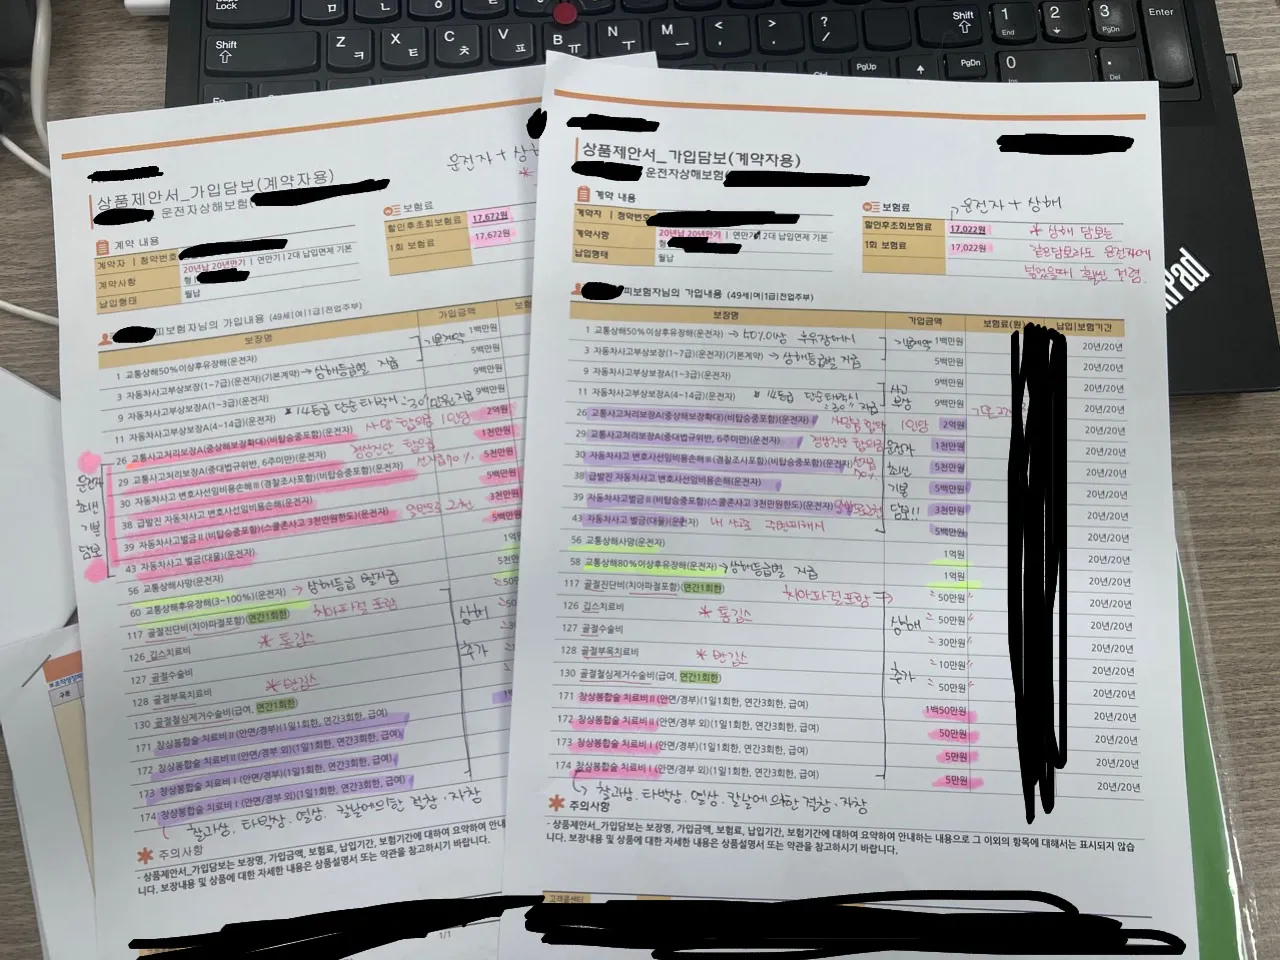 Lock
Shift
Z ㅋ
X ㅌ
C ㅊ
V ㅍ
B ㅠ
N ㅜ
M ㅡ
< ,
> .
? /
Shift
1 End
2
3 PgDn
Enter
PgUp
PgDn
0 Ins
. Del
Ctrl
Pad
상품제안서_가입담보(계약자용)
운전자상해보험
운전자 + 상해
계약 내용
계약자 | 청약번호
계약사항 20년납 20년만기 | 연만기 | 2대 납입면제 기본형 |
납입형태 월납
보험료
할인후초회보험료 17,672원
1회 보험료 17,672원
피보험자님의 가입내용 (49세|여|1급|전업주부)
보장명 가입금액
1 교통상해50%이상후유장해(운전자) 기본계약 1백만원
3 자동차사고부상보장(1~7급)(운전자)(기본계약) → 상해등급별 지급 5백만원
9 자동차사고부상보장A(1~3급)(운전자) 9백만원
11 자동차사고부상보장A(4~14급)(운전자) * 14등급 단순타박시 : 30만원 지급 9백만원
26 교통사고처리보장A(중상해보장확대)(비탑승중포함)(운전자) 사망 합의금 1인당 2억원
29 교통사고처리보장A(중대법규위반, 6주미만)(운전자) 정상진단 합의금 1천만원
30 자동차사고 변호사선임비용손해Ⅲ(경찰조사포함)(비탑승중포함)(운전자) 선지급70% 5천만원
38 급발진 자동차사고 변호사선임비용손해(운전자) 5백만원
39 자동차사고벌금Ⅱ(비탑승중포함)(스쿨존사고 3천만원한도)(운전자) 3천만원
43 자동차사고 벌금(대물)(운전자) 5백만원
운전자 최신 기본 담보
56 교통상해사망(운전자) 1억원
60 교통상해후유장해(3~100%)(운전자) → 상해등급 별지급 5천만
117 골절진단비(치아파절포함)(연간1회한) 치아파절 포함
126 깁스치료비 * 통깁스
127 골절수술비
128 골절부목치료비 * 반깁스
130 골절철심제거수술비(급여, 연간1회한)
상해 추가
171 창상봉합술 치료비Ⅱ(안면/경부)(1일1회한, 연간3회한, 급여)
172 창상봉합술 치료비Ⅱ(안면/경부 외)(1일1회한, 연간3회한, 급여)
173 창상봉합술 치료비Ⅰ(안면/경부)(1일1회한, 연간3회한, 급여)
174 창상봉합술 치료비Ⅰ(안면/경부 외)(1일1회한, 연간3회한, 급여)
찰과상. 타박상. 열상. 칼날에의한 절창. 자창
주의사항
- 상품제안서_가입담보는 보장명, 가입금액, 보험료, 납입기간, 보험기간에 대하여 요약하여 안내
니다. 보장내용 및 상품에 대한 자세한 내용은 상품설명서 또는 약관을 참고하시기 바랍니다.
1/1
상품제안서_가입담보(계약자용)
운전자상해보험
계약 내용
계약자 | 청약번호
계약사항 20년납 20년만기 | 연만기 | 2대 납입면제 기본형 |
납입형태 월납
보험료
할인후초회보험료 17,022원
1회 보험료 17,022원
운전자 + 상해
* 상해 담보는
같은담보라도 운전자에
넣었을때 훨씬 저렴.
피보험자님의 가입내용 (49세|여|1급|전업주부)
보장명 가입금액 보험료(원) 납입|보험기간
1 교통상해50%이상후유장해(운전자) → 50%이상 후유장해시 기본계약 1백만원 20년/20년
3 자동차사고부상보장(1~7급)(운전자)(기본계약) → 상해등급별 지급 5백만원 20년/20년
9 자동차사고부상보장A(1~3급)(운전자) 9백만원 20년/20년
11 자동차사고부상보장A(4~14급)(운전자) * 14등급 단순타박시 : 30" 지급 9백만원 20년/20년
사고 부상
26 교통사고처리보장A(중상해보장확대)(비탑승중포함)(운전자) 사망 합의 1인당 2억원 20년/20년
29 교통사고처리보장A(중대법규위반, 6주미만)(운전자) 정상진단 합의금 1천만원 20년/20년
30 자동차사고 변호사선임비용손해Ⅲ(경찰조사포함)(비탑승중포함)(운전자) 선지급 70% 5천만원 20년/20년
38 급발진 자동차사고 변호사선임비용손해(운전자) 5백만원 20년/20년
39 자동차사고벌금Ⅱ(비탑승중포함)(스쿨존사고 3천만원한도)(운전자) 3천만원 20년/20년
43 자동차사고 벌금(대물)(운전자) 5백만원 20년/20년
운전자 최신 기본 담보!!
56 교통상해사망(운전자) 1억원 20년/20년
58 교통상해80%이상후유장해(운전자) → 상해등급별 지급 1억원 20년/20년
117 골절진단비(치아파절포함)(연간1회한) 치아파절포함 50만원 20년/20년
126 깁스치료비 * 통깁스 50만원 20년/20년
127 골절수술비 30만원 20년/20년
128 골절부목치료비 * 반깁스 10만원 20년/20년
130 골절철심제거수술비(급여, 연간1회한) 50만원 20년/20년
상해 추가
171 창상봉합술 치료비Ⅱ(안면/경부)(1일1회한, 연간3회한, 급여) 1백50만원 20년/20년
172 창상봉합술 치료비Ⅱ(안면/경부 외)(1일1회한, 연간3회한, 급여) 50만원 20년/20년
173 창상봉합술 치료비Ⅰ(안면/경부)(1일1회한, 연간3회한, 급여) 5만원 20년/20년
174 창상봉합술 치료비Ⅰ(안면/경부 외)(1일1회한, 연간3회한, 급여) 5만원 20년/20년
찰과상. 타박상. 열상. 칼날에 의한 절창. 자창
주의사항
- 상품제안서_가입담보는 보장명, 가입금액, 보험료, 납입기간, 보험기간에 대하여 요약하여 안내하는 내용으로 그 이외의 항목에 대해서는 표시되지 않습
니다. 보장내용 및 상품에 대한 자세한 내용은 상품설명서 또는 약관을 참고하시기 바랍니다.
고객콜센터